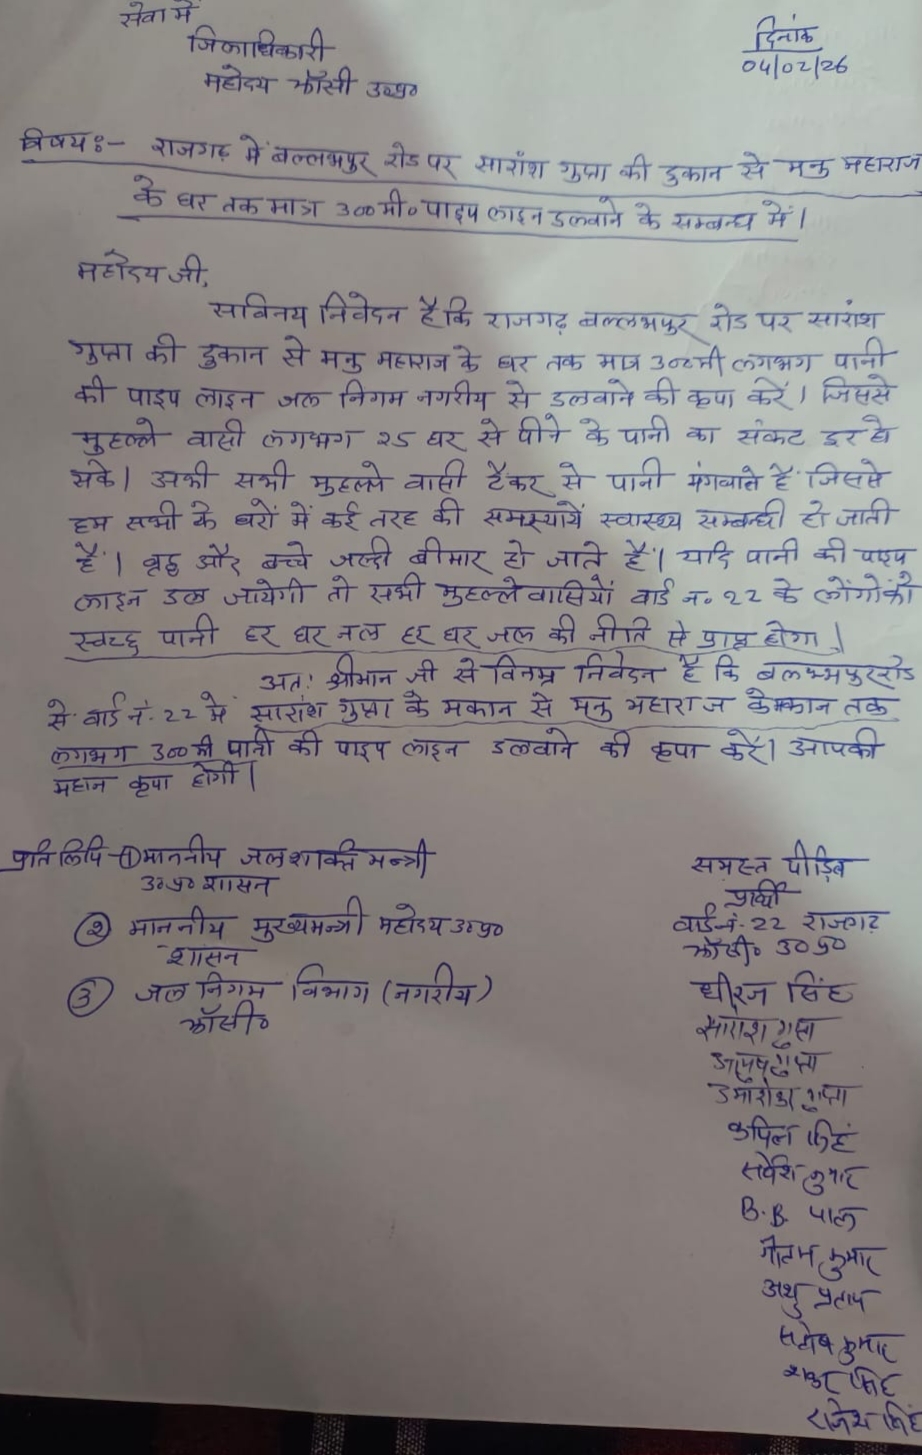 सेवा में
जिलाधिकारी
महोदय झाँसी उ०प्र०
दिनांक
04/02/26
विषयः- राजगढ़ में बल्लभपुर रोड पर सारांश गुप्ता की दुकान से मनु महाराज
के घर तक मात्र 300मी० पाइप लाइन डलवाने के सम्बन्ध में।
महोदय जी,
सविनय निवेदन है कि राजगढ़ बल्लभपुर रोड पर सारांश
गुप्ता की दुकान से मनु महाराज के घर तक मात्र 300मी लगभग पानी
की पाइप लाइन जल निगम नगरीय से डलवाने की कृपा करें। जिससे
मुहल्ले वासी लगभग 25 घर से पीने के पानी का संकट दूर हो
सके। अभी सभी मुहल्ले वासी टैंकर से पानी मंगवाते हैं जिससे
हम सभी के घरों में कई तरह की समस्यायें स्वास्थ्य सम्बन्धी हो जाती
हैं। वृद्ध और बच्चे जल्दी बीमार हो जाते हैं। यदि पानी की पाइप
लाइन डल जायेगी तो सभी मुहल्लेवासियों वार्ड न० 22 के लोंगोंको
स्वच्छ पानी हर घर नल हर घर जल की नीति से प्राप्त होगा।
अतः श्रीमान जी से विनम्र निवेदन है कि बलभ्भपुररोड
से वार्ड नं. 22 में सारांश गुप्ता के मकान से मनु महाराज केमकान तक
लगभग 300मी पानी की पाइप लाइन डलवाने की कृपा करें। आपकी
महान कृपा होगी।
प्रतिलिपि - ① माननीय जलशक्ति मन्त्री
उ०प्र० शासन
② माननीय मुख्यमन्त्री महोदय उ०प्र०
शासन
③ जल निगम विभाग (नगरीय)
झाँसी०
समस्त पीड़ित
प्रार्थी
वार्ड नं. 22 राजगढ़
झाँसी० उ०प्र०
धीरज सिंह
सारांश गुप्ता
गुप्ता
गुप्ता
कपिल सिंह
सर्वेश कुमार
B.B. पाल
गौतम कुमार
प्रताप
कुमार
सिंह
राजेश सिंह